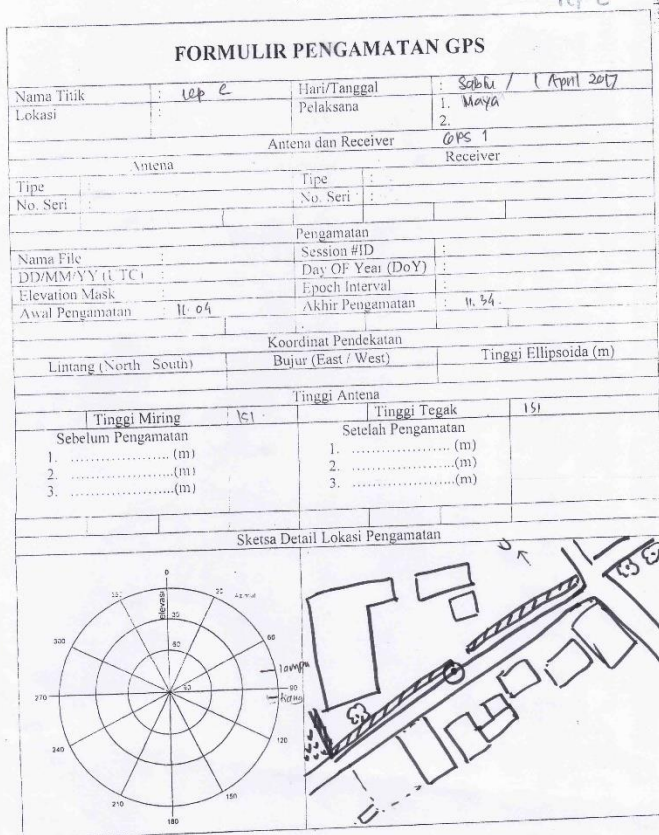 FORMULIR PENGAMATAN GPS
Nama Titik : Hari/Tanggal : Sabtu / 1 April 2017
Lokasi : Pelaksana 1. Maya
2.
Antena dan Receiver GPS 1
Antena Receiver
Tipe : Tipe :
No. Seri : No. Seri :
Pengamatan
Nama File : Session #ID :
DD/MM/YY (UTC) : Day OF Year (DoY) :
Elevation Mask : Epoch Interval :
Awal Pengamatan : 11.04 Akhir Pengamatan : 11.34.
Koordinat Pendekatan
Lintang (North South) Bujur (East / West) Tinggi Ellipsoida (m)
Tinggi Antena
Tinggi Miring 151. Tinggi Tegak 151
Sebelum Pengamatan Setelah Pengamatan
1. ................... (m) 1. ................... (m)
2. ................... (m) 2. ...................(m)
3. ...................(m) 3. ...................(m)
Sketsa Detail Lokasi Pengamatan
U
0
elevasi
30
30
60
60
300
lampu
270
90
90
240
120
210
150
180